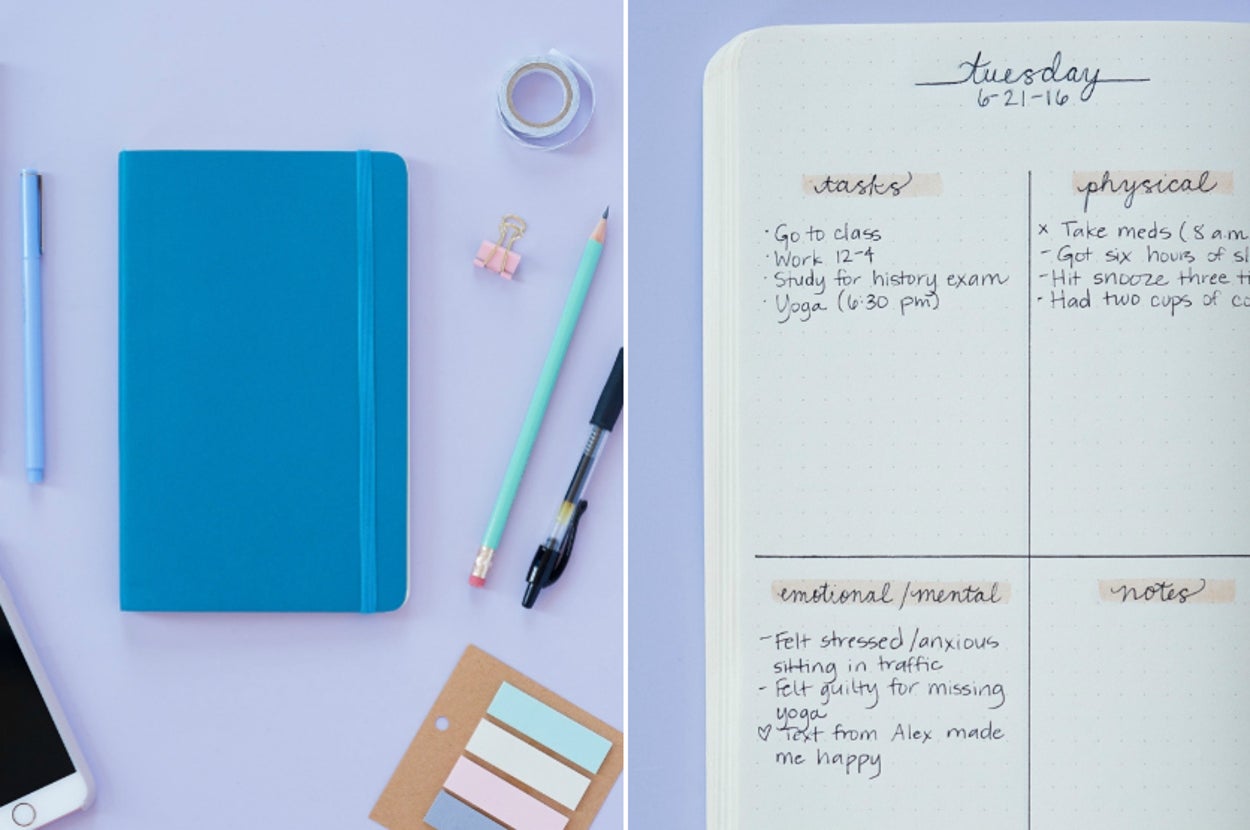 tuesday
6-21-16
tasks
· Go to class
· Work 12-4
· Study for history exam
· Yoga (6:30 pm)
physical
x Take meds (8 a.m
- Got six hours of sl
- Hit snooze three ti
· Had two cups of co
emotional/mental
- Felt stressed/anxious
sitting in traffic
- Felt guilty for missing
yoga
♡ Text from Alex made
me happy
notes